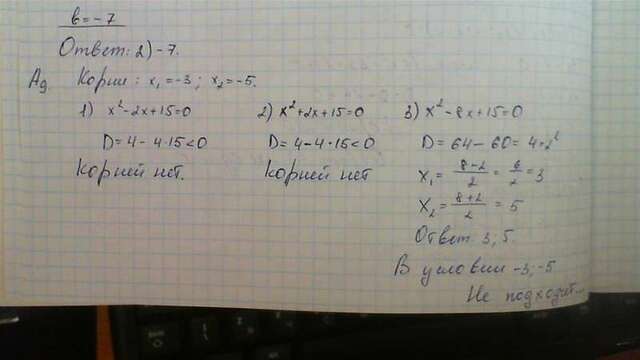 b = -7
Ответ: 2) -7.
А9 Корни: x₁ = -3; x₂ = -5.
1) x² - 2x + 15 = 0
D = 4 - 4·15 < 0
Корней нет.
2) x² + 2x + 15 = 0
D = 4 - 4·15 < 0
Корней нет
3) x² - 8x + 15 = 0
D = 64 - 60 = 4 = 2²
x₁ = (8-2)/2 = 6/2 = 3
x₂ = (8+2)/2 = 5
Ответ: 3; 5
В условии -3; -5
Не подходит...